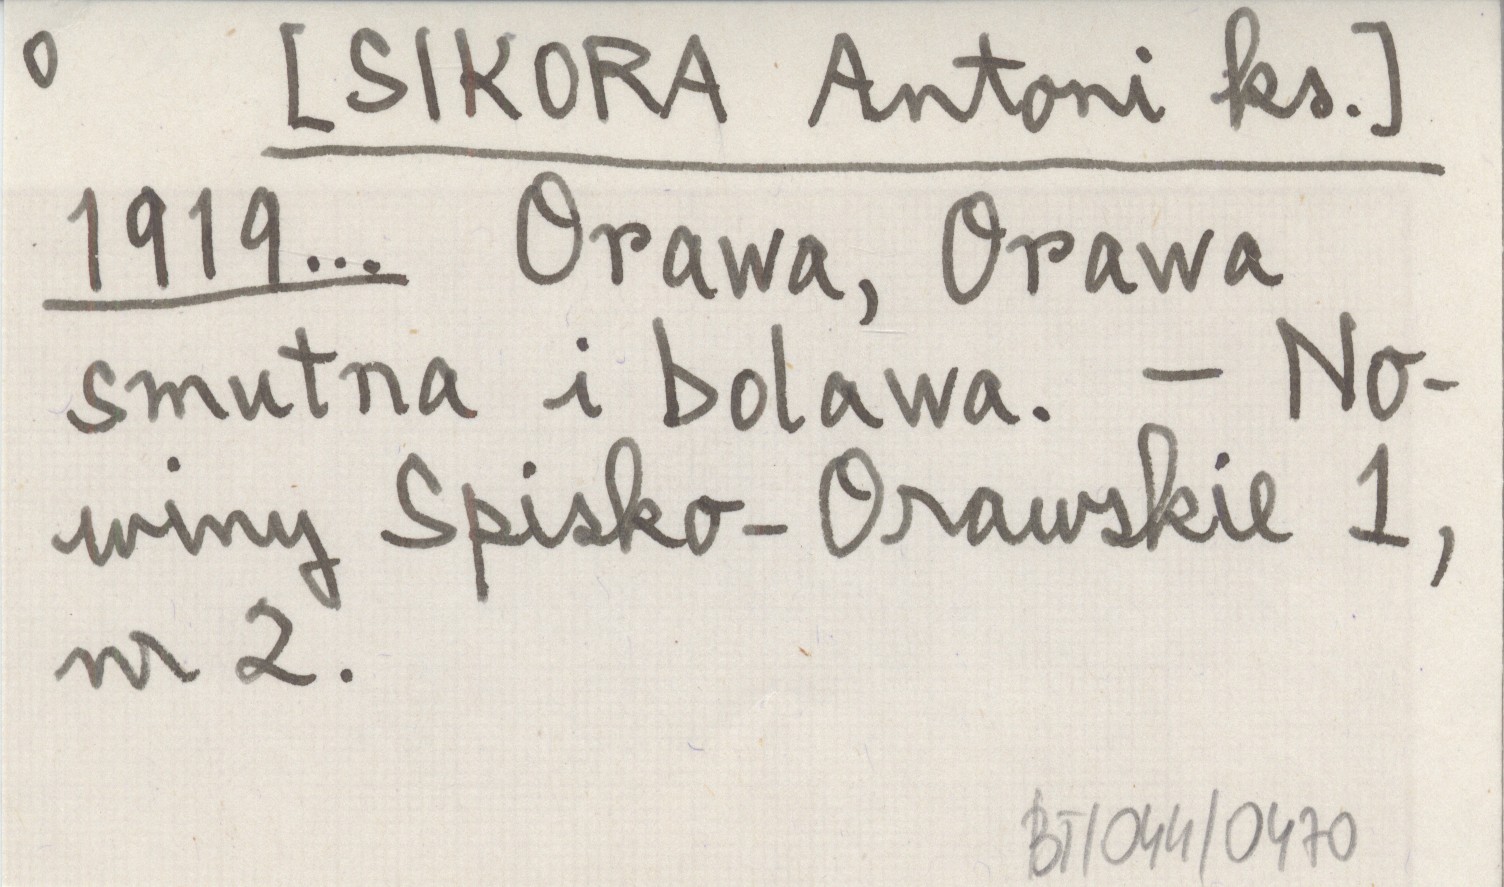 o [SIKORA Antoni ks.]
1919... Orawa, Orawa
smutna i bolawa. – No-
winy Spisko-Orawskie 1,
nr 2.
BT/044/0470